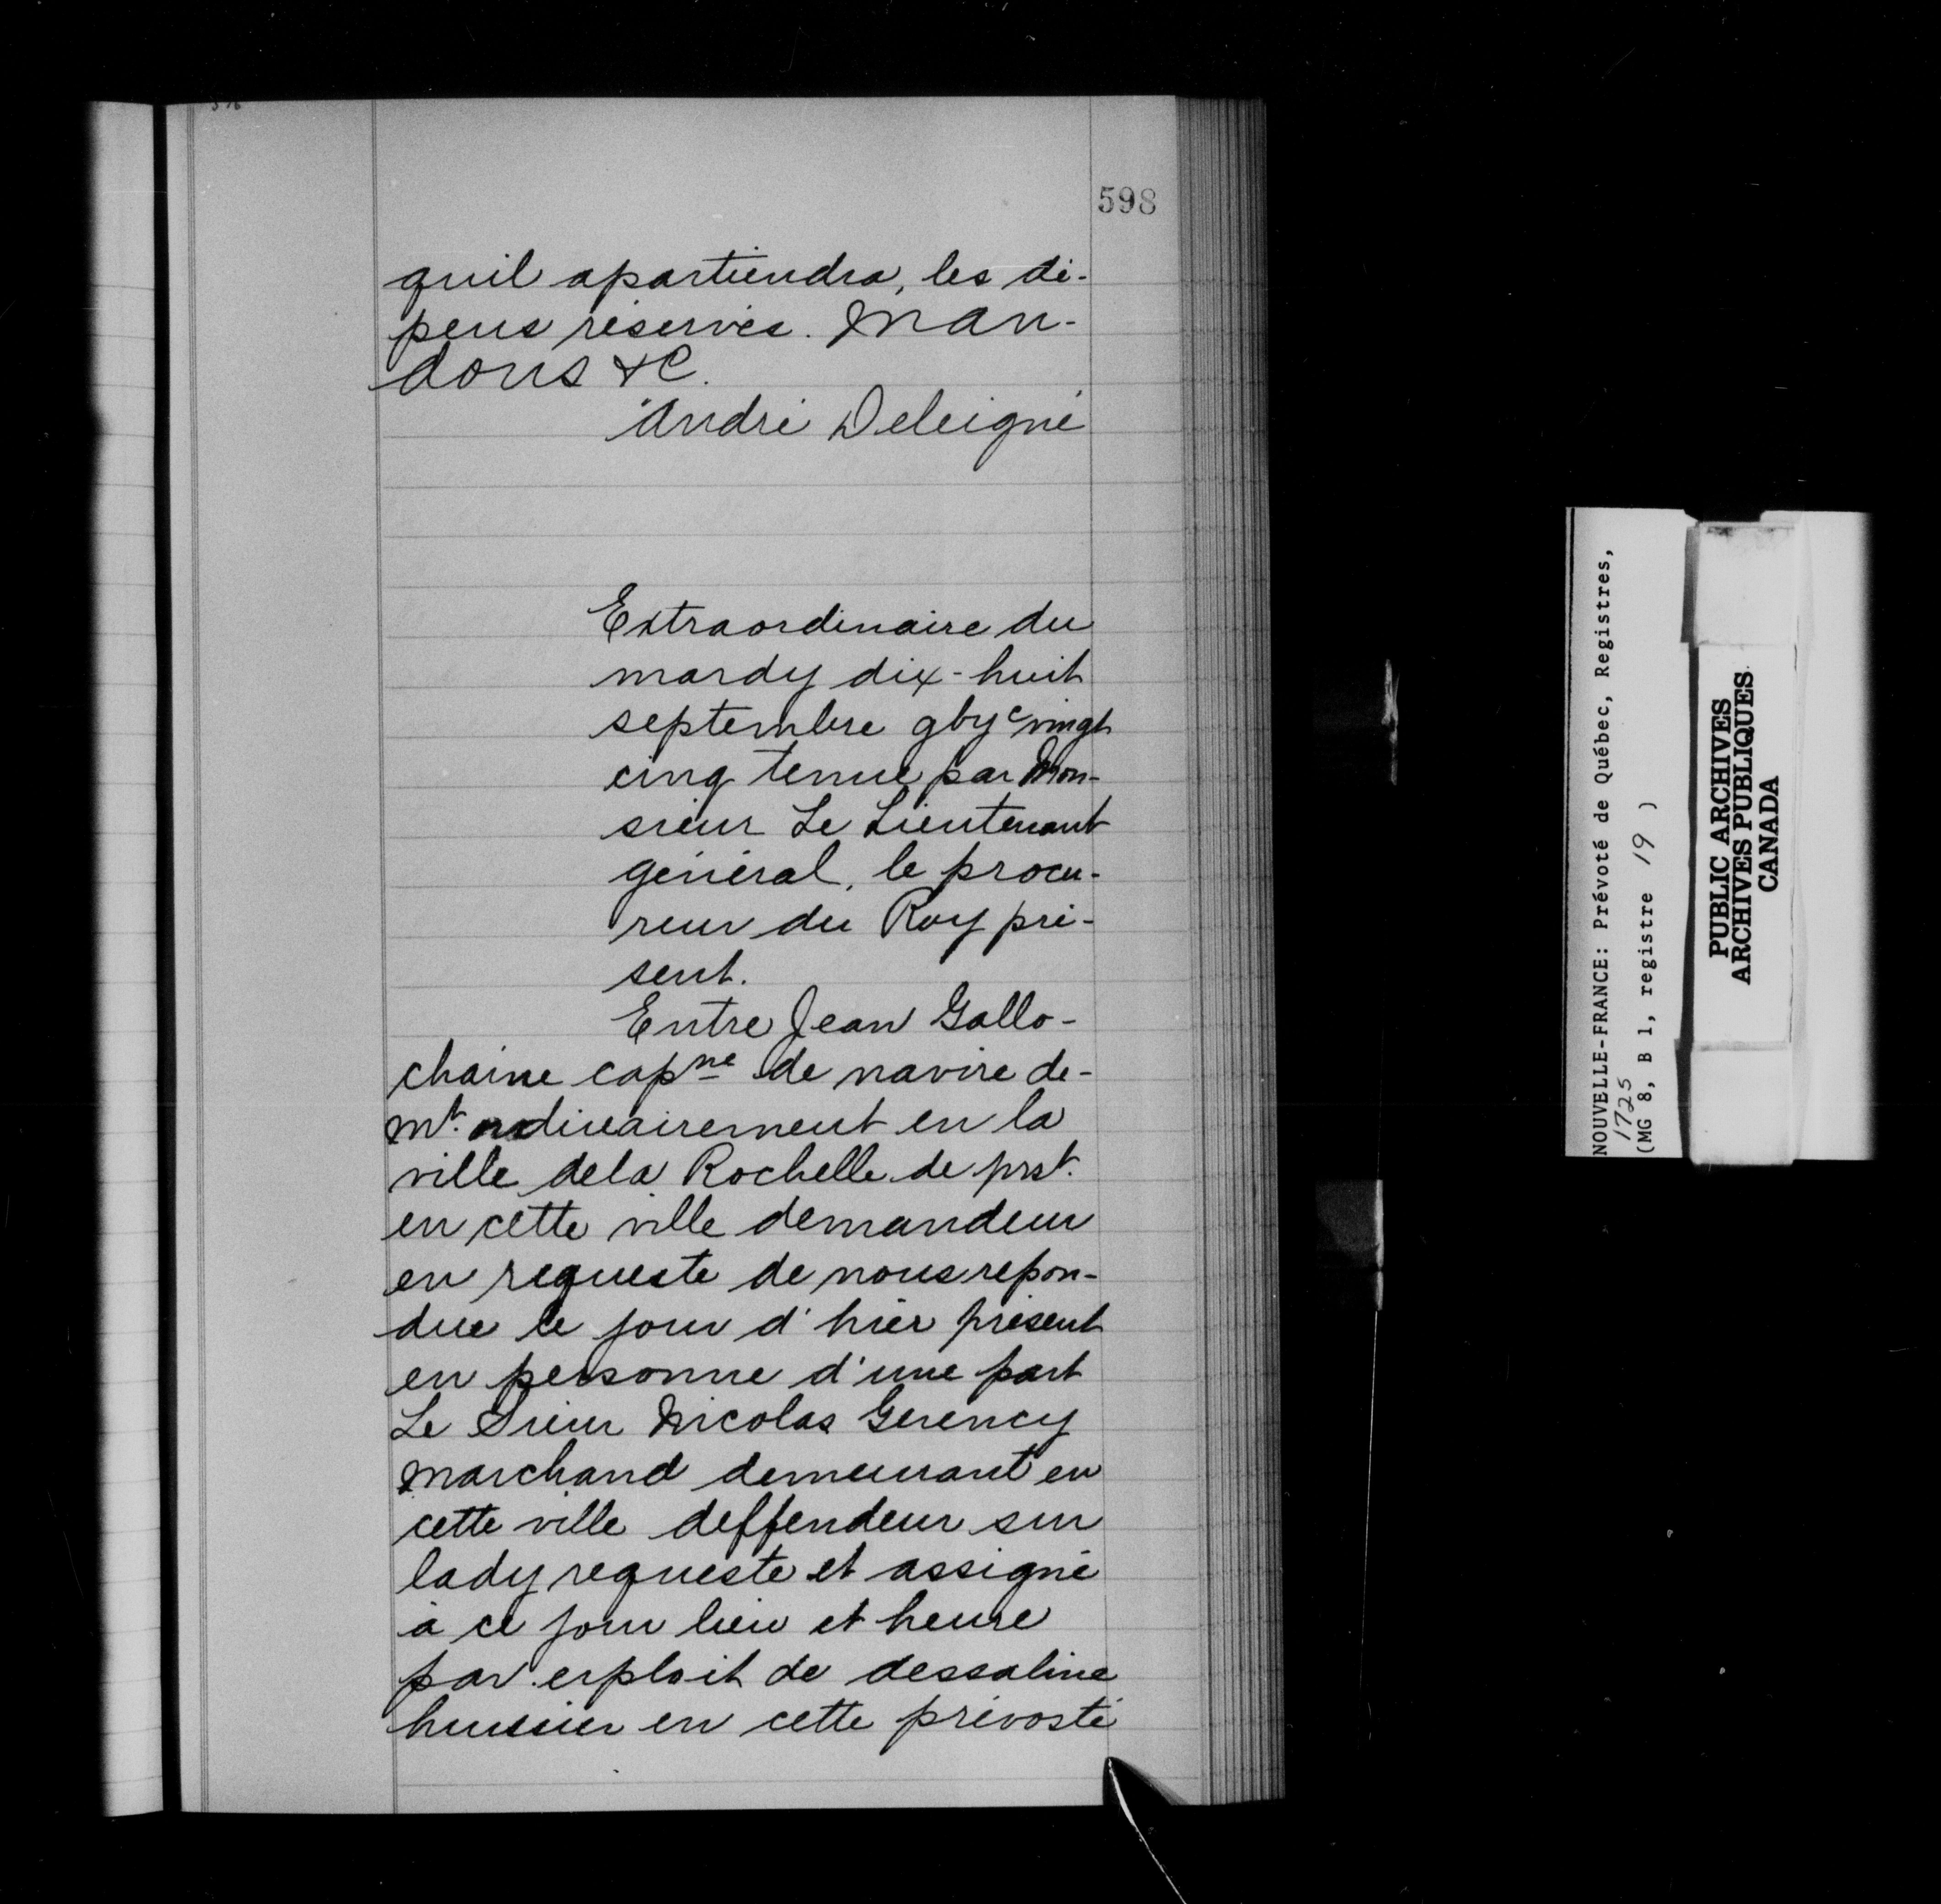 598
quil apartiendra, les dé-
pens réservés. Man-
dons &C.
André Deleigné
Extraordinaire du
mardy dix-huit
septembre gbyc vingt
cinq tenue par Mon-
sieur Le Lieutenant
général, le procu-
reur du Roy pré-
sent.
Entre Jean Gallo-
chaine capne de navire de-
mt. ordinairement en la
ville dela Rochelle de prst.
en cette ville demandeur
en requeste de nous repon-
due le jour d'hier présent
en personne d'une part
Le Sieur Nicolas Gerency
marchand demeurant en
cette ville deffendeur sur
lady requeste et assigné
à ce jour lieu et heure
par exploit de dessaline
huissier en cette prévosté
NOUVELLE-FRANCE: Prévoté de Québec, Registres,
1725
(MG 8, B 1, registre 19 )
PUBLIC ARCHIVES
ARCHIVES PUBLIQUES
CANADA